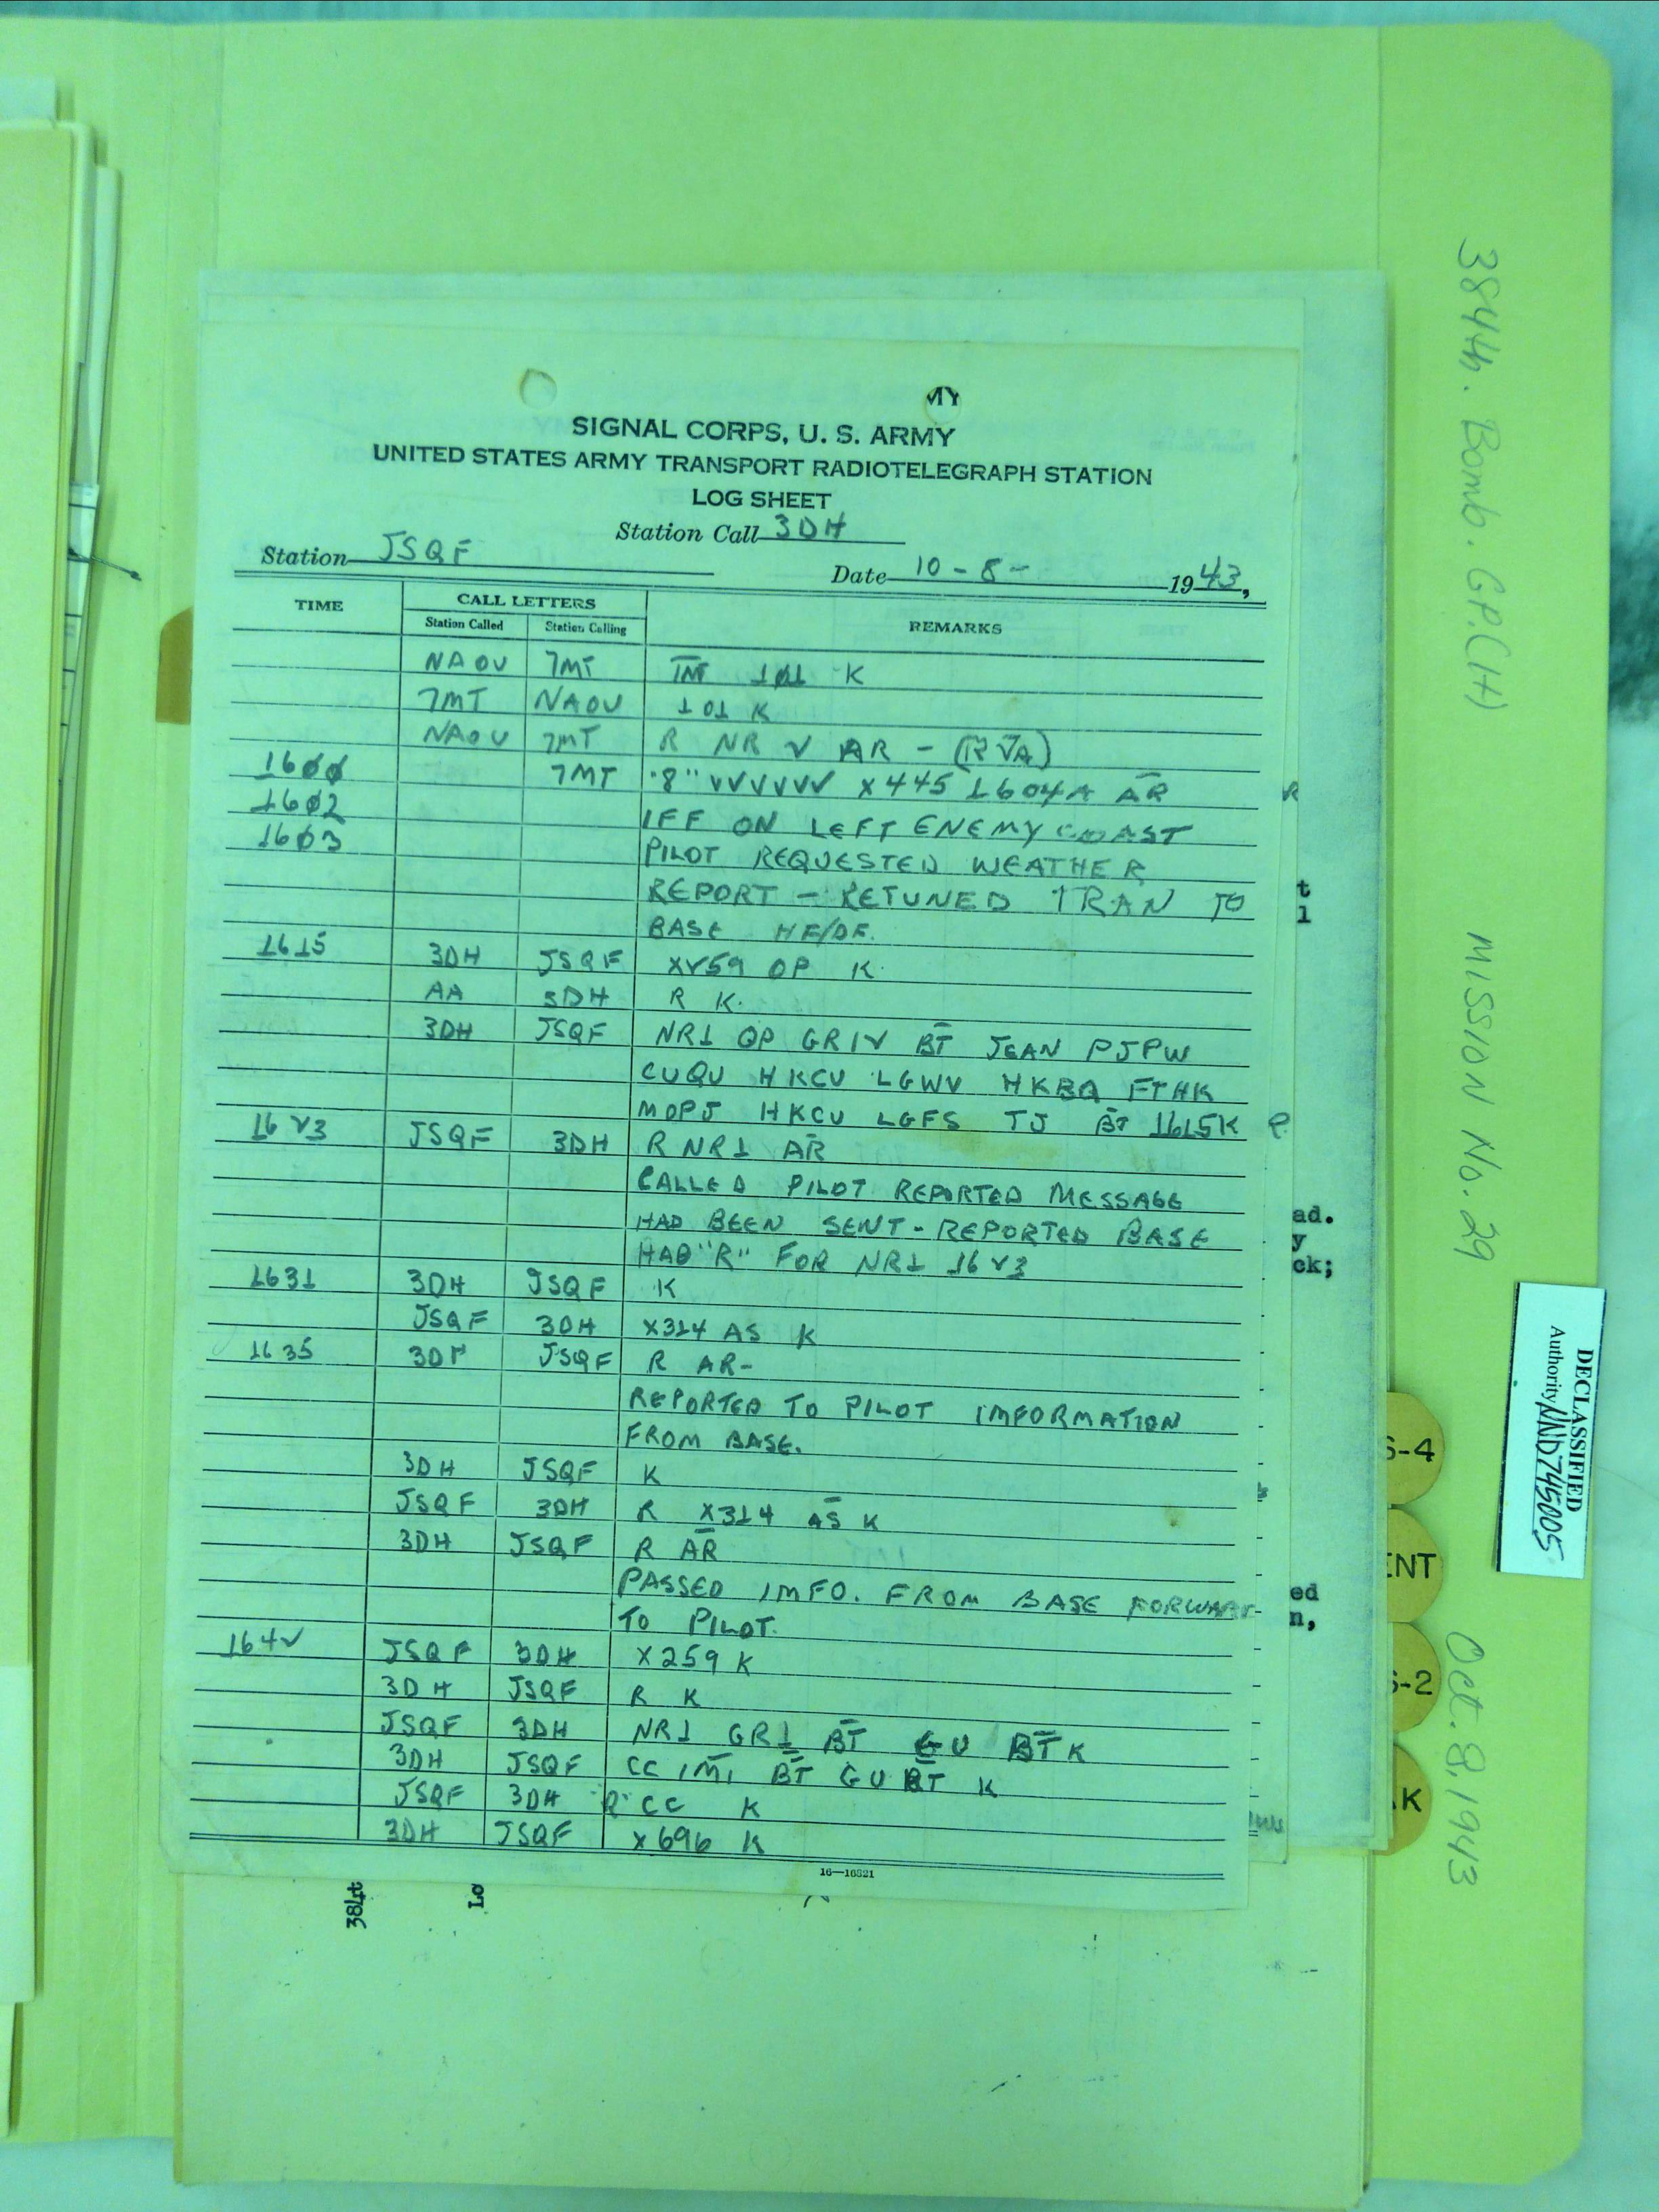 MY
SIGNAL CORPS, U. S. ARMY
UNITED STATES ARMY TRANSPORT RADIOTELEGRAPH STATION
LOG SHEET
Station Call 3DH
Station JSQF
Date 10-8- 1943,
TIME CALL LETTERS REMARKS
Station Called Station Calling
NAOU 7MT INT 101 K
7MT NAOU 101 K
NAOU 7MT R NR V AR - (R VA)
1600 7MT "8" VVVVVV X445 1604A AR
1602 IFF ON LEFT ENEMY COAST
1603 PILOT REQUESTED WEATHER
REPORT - RETUNED TRAN TO
BASE HF/DF.
1615 3DH JSQF XV59 OP K.
AA 3DH R K.
3DH JSQF NR1 OP GR1V BT JEAN PJPW
CUQU HKCU LGWV HKBQ FTHK
MOPJ HKCU LGFS TJ BT 1615K
16V3 JSQF 3DH R NR1 AR
CALLED PILOT REPORTED MESSAGE
HAD BEEN SENT - REPORTED BASE
HAD "R" FOR NR1 16V3
1631 3DH JSQF K
JSQF 3DH X314 AS K
1635 3DH JSQF R AR-
REPORTED TO PILOT IMFORMATION
FROM BASE.
3DH JSQF K
JSQF 3DH R X314 AS K
3DH JSQF R AR
PASSED IMFO. FROM BASE FORWART
TO PILOT.
164V JSQF 3DH X259 K
3DH JSQF R K
JSQF 3DH NR1 GR1 BT GU BT K
3DH JSQF CC IMI BT GU BT K
JSQF 3DH R CC K
3DH JSQF X696 K
16—16821
384th. Bomb. GP.(H)
MISSION No. 29
Oct. 8, 1943
DECLASSIFIED
Authority NND745005
t
l
ad.
y
ck;
ed
n,
S-4
ENT
S-2
K
384t
Lo